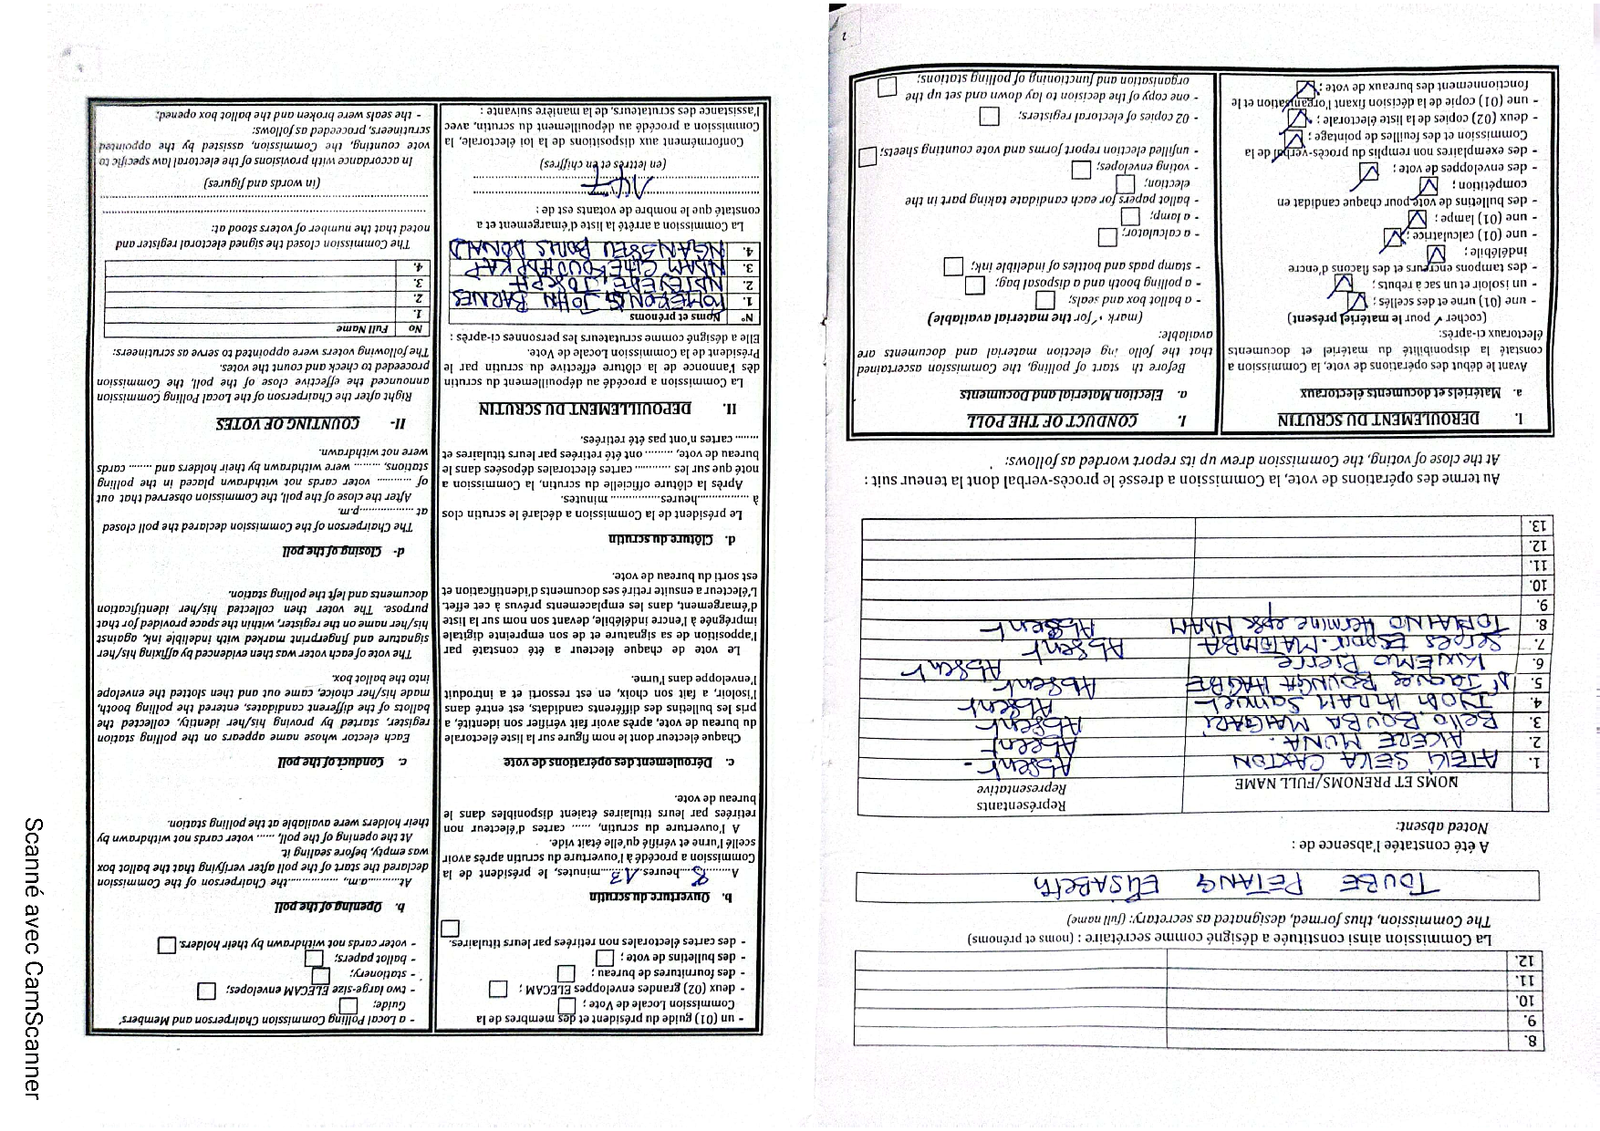 8.
9.
10.
11.
12.
La Commission ainsi constituée a désigné comme secrétaire : (noms et prénoms)
The Commission, thus formed, designated as secretary: (full name)
TOUBE PETANG ELISABETH
A été constatée l'absence de :
Noted absent:
NOMS ET PRENOMS/FULL NAME
Représentants
Representative
1. ATEKI SEKA CAXTON Absent
2. AKERE MUNA. Absent
3. Bello BOUBA MAIGARI Absent
4. Absent
5. Absent
6. Pierre Absent
7. Serges Espoir MATOMBA Absent
8. TOMAINO Hermine epse NDAM Absent
9.
10.
11.
12.
13.
Au terme des opérations de vote, la Commission a dressé le procès-verbal dont la teneur suit :
At the close of voting, the Commission drew up its report worded as follows:
I. DEROULEMENT DU SCRUTIN
a. Matériels et documents électoraux
Avant le début des opérations de vote, la Commission a
constaté la disponibilité du matériel et documents
électoraux ci-après:
(cocher ✓ pour le matériel présent)
- une (01) urne et des scellés ;
- un isoloir et un sac à rebuts ;
- des tampons encreurs et des flacons d'encre
indélébile;
- une (01) calculatrice ;
- une (01) lampe ;
- des bulletins de vote pour chaque candidat en
compétition ;
- des enveloppes de vote ;
- des exemplaires non remplis du procès-verbal de la
Commission et des feuilles de pointage ;
- deux (02) copies de la liste électorale ;
- une (01) copie de la décision fixant l'organisation et le
fonctionnement des bureaux de vote ;
I. CONDUCT OF THE POLL
a. Election Material and Documents
Before th start of polling, the Commission ascertained
that the follo ing election material and documents are
available:
(mark ✓ for the material available)
- a ballot box and seals;
- a polling booth and a disposal bag;
- stamp pads and bottles of indelible ink;
- a calculator;
- a lamp;
- ballot papers for each candidate taking part in the
election;
- voting envelopes;
- unfilled election report forms and vote counting sheets;
- 02 copies of electoral registers;
- one copy of the decision to lay down and set up the
organisation and functioning of polling stations;
2
- un (01) guide du président et des membres de la
Commission Locale de Vote ;
- deux (02) grandes enveloppes ELECAM ;
- des fournitures de bureau ;
- des bulletins de vote ;
- des cartes électorales non retirées par leurs titulaires.
b. Ouverture du scrutin
A 8 heures 13 minutes, le président de la
Commission a procédé à l'ouverture du scrutin après avoir
scellé l'urne et vérifié qu'elle était vide.
A l'ouverture du scrutin, ...... cartes d'électeur non
retirées par leurs titulaires étaient disponibles dans le
bureau de vote.
c. Déroulement des opérations de vote
Chaque électeur dont le nom figure sur la liste électorale
du bureau de vote, après avoir fait vérifier son identité, a
pris les bulletins des différents candidats, est entré dans
l'isoloir, a fait son choix, en est ressorti et a introduit
l'enveloppe dans l'urne.
Le vote de chaque électeur a été constaté par
l'apposition de sa signature et de son empreinte digitale
imprégnée à l'encre indélébile, devant son nom sur la liste
d'émargement, dans les emplacements prévus à cet effet.
L'électeur a ensuite retiré ses documents d'identification et
est sorti du bureau de vote.
d. Clôture du scrutin
Le président de la Commission a déclaré le scrutin clos
à ...............heures............... minutes.
Après la clôture officielle du scrutin, la Commission a
noté que sur les .......... cartes électorales déposées dans le
bureau de vote, ........ ont été retirées par leurs titulaires et
...... cartes n'ont pas été retirées.
II. DEPOUILLEMENT DU SCRUTIN
La Commission a procédé au dépouillement du scrutin
dès l'annonce de la clôture effective du scrutin par le
Président de la Commission Locale de Vote.
Elle a désigné comme scrutateurs les personnes ci-après :
N° Noms et prénoms
1. JOHN BARNES
2. NDIEYERE JOSEPH
3. NDAM
4. NGANSSEU BORIS DONALD
La Commission a arrêté la liste d'émargement et a
constaté que le nombre de votants est de :
147
(en lettres et en chiffres)
Conformément aux dispositions de la loi électorale, la
Commission a procédé au dépouillement du scrutin, avec
l'assistance des scrutateurs, de la manière suivante :
- a Local Polling Commission Chairperson and Members'
Guide;
- two large-size ELECAM envelopes;
- stationery;
- ballot papers;
- voter cards not withdrawn by their holders.
b. Opening of the poll
At.........a.m., ...............the Chairperson of the Commission
declared the start of the poll after verifying that the ballot box
was empty, before sealing it.
At the opening of the poll, ...... voter cards not withdrawn by
their holders were available at the polling station.
c. Conduct of the poll
Each elector whose name appears on the polling station
register, started by proving his/her identity, collected the
ballots of the different candidates, entered the polling booth,
made his/her choice, came out and then slotted the envelope
into the ballot box.
The vote of each voter was then evidenced by affixing his/her
signature and fingerprint marked with indelible ink, against
his/her name on the register, within the space provided for that
purpose. The voter then collected his/her identification
documents and left the polling station.
d- Closing of the poll
The Chairperson of the Commission declared the poll closed
at ..................p.m.
After the close of the poll, the Commission observed that out
of .......... voter cards not withdrawn placed in the polling
stations, ........ were withdrawn by their holders and ...... cards
were not withdrawn.
II- COUNTING OF VOTES
Right after the Chairperson of the Local Polling Commission
announced the effective close of the poll, the Commission
proceeded to check and count the votes.
The following voters were appointed to serve as scrutineers:
No Full Name
1.
2.
3.
4.
The Commission closed the signed electoral register and
noted that the number of voters stood at:
(in words and figures)
In accordance with provisions of the electoral law specific to
vote counting, the Commission, assisted by the appointed
scrutineers, proceeded as follows:
- the seals were broken and the ballot box opened;
Scanné avec CamScanner